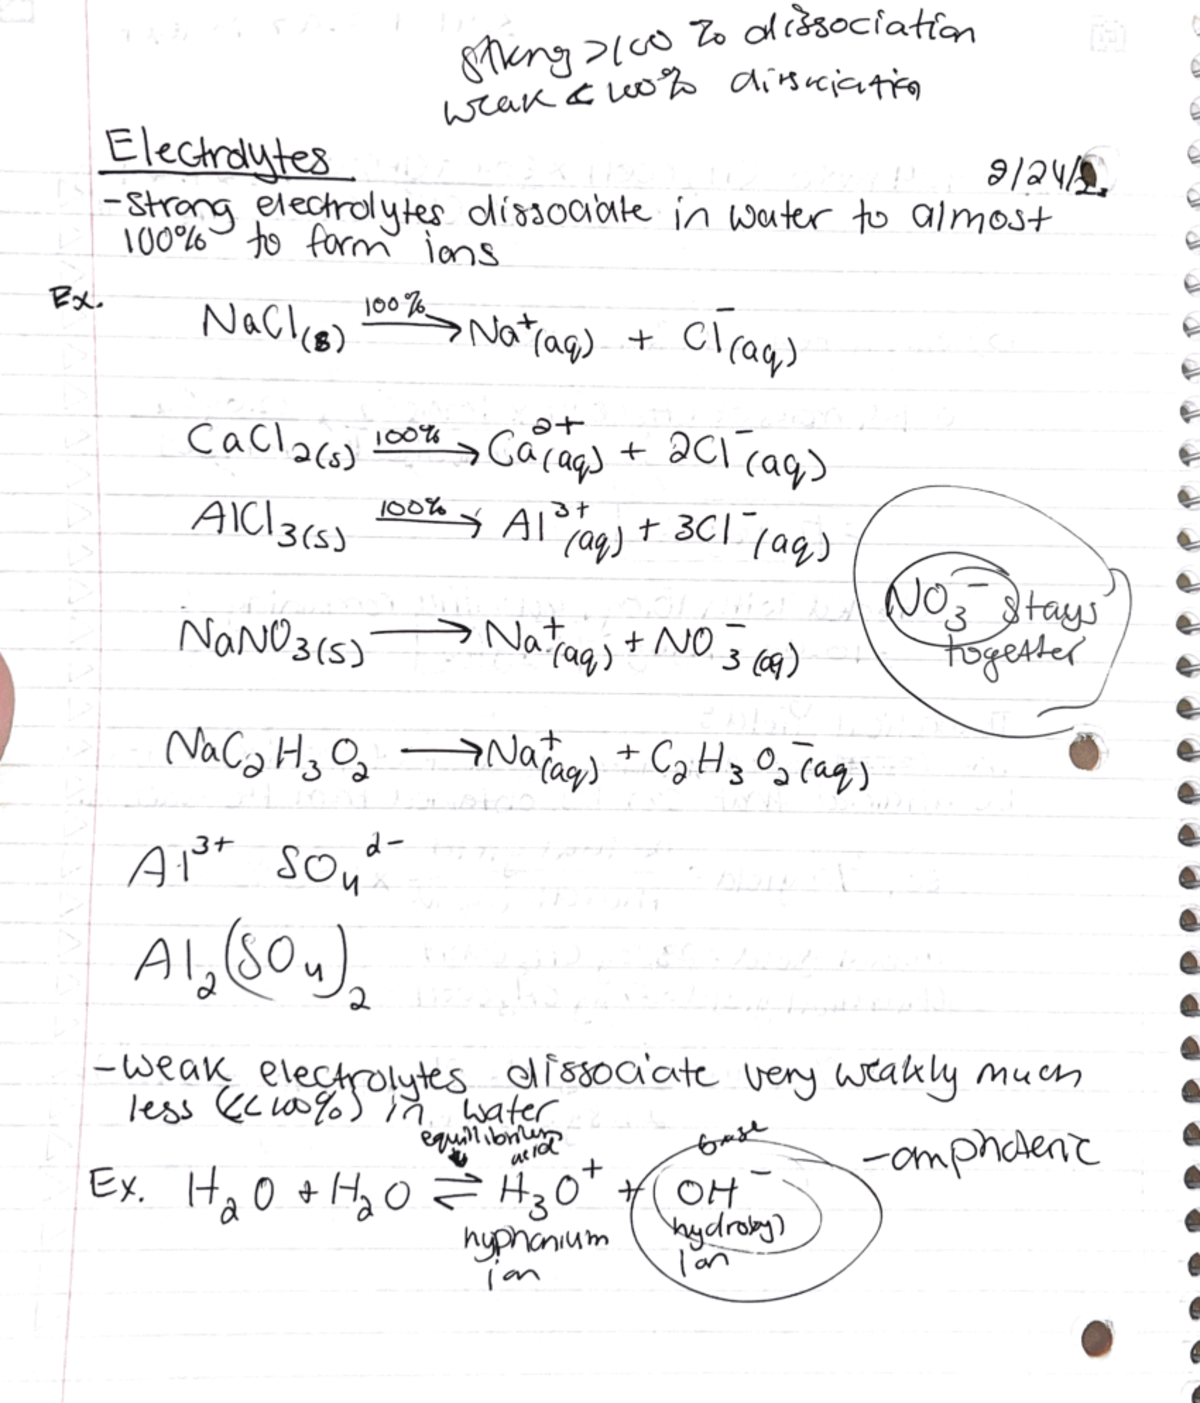 strong >100 % dissociation
weak < 100% dissociation
Electrolytes
9/24/
-strong electrolytes dissociate in water to almost
100% to form ions
Ex.
NaCl(s) 100%→ Na⁺(aq) + Cl⁻(aq)
CaCl₂(s) 100%→ Ca²⁺(aq) + 2Cl⁻(aq)
AlCl₃(s) 100%→ Al³⁺(aq) + 3Cl⁻(aq)
NO₃⁻ stays
together
NaNO₃(s) → Na⁺(aq) + NO₃⁻(aq)
NaC₂H₃O₂ → Na⁺(aq) + C₂H₃O₂⁻(aq)
Al³⁺ SO₄²⁻
Al₂(SO₄)₂
-weak electrolytes dissociate very weakly much
less (<<100%) in water
equillibrium
acid
base
-amphoteric
Ex. H₂O + H₂O ⇌ H₃O⁺ + OH⁻
hyphonium
ion
hydroxyl
ion